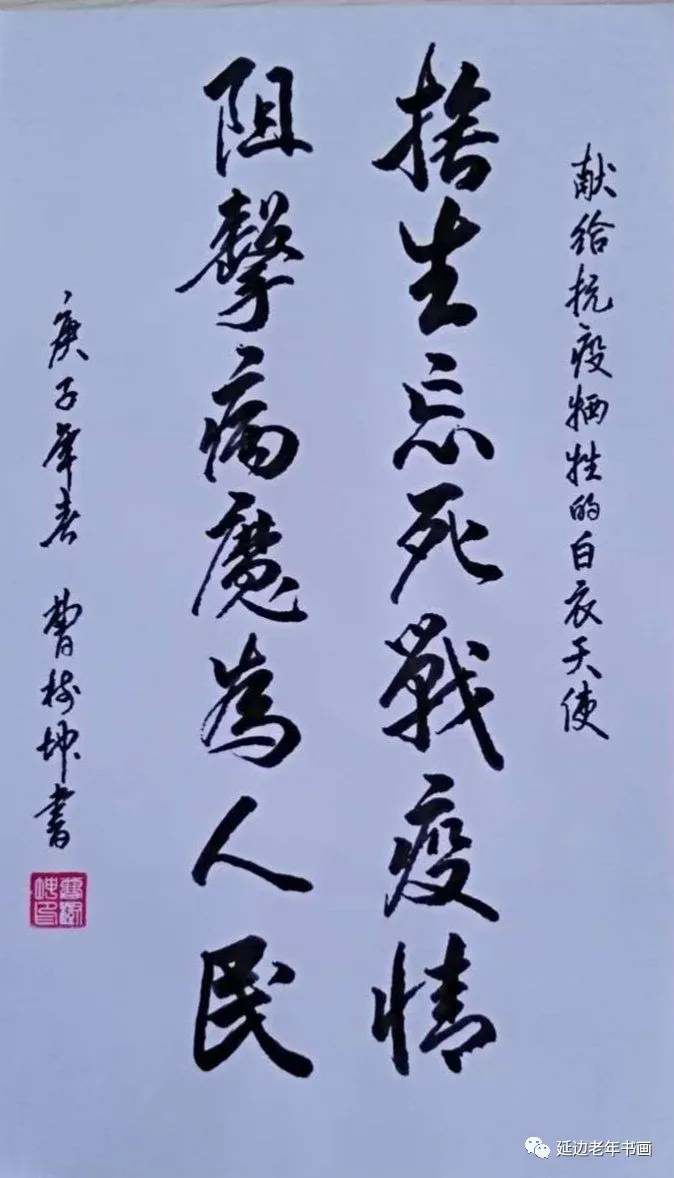 献给抗疫牺牲的白衣天使
捨生忘死戰疫情
阻擊病魔為人民
庚子年春 曹树坤書
延边老年书画